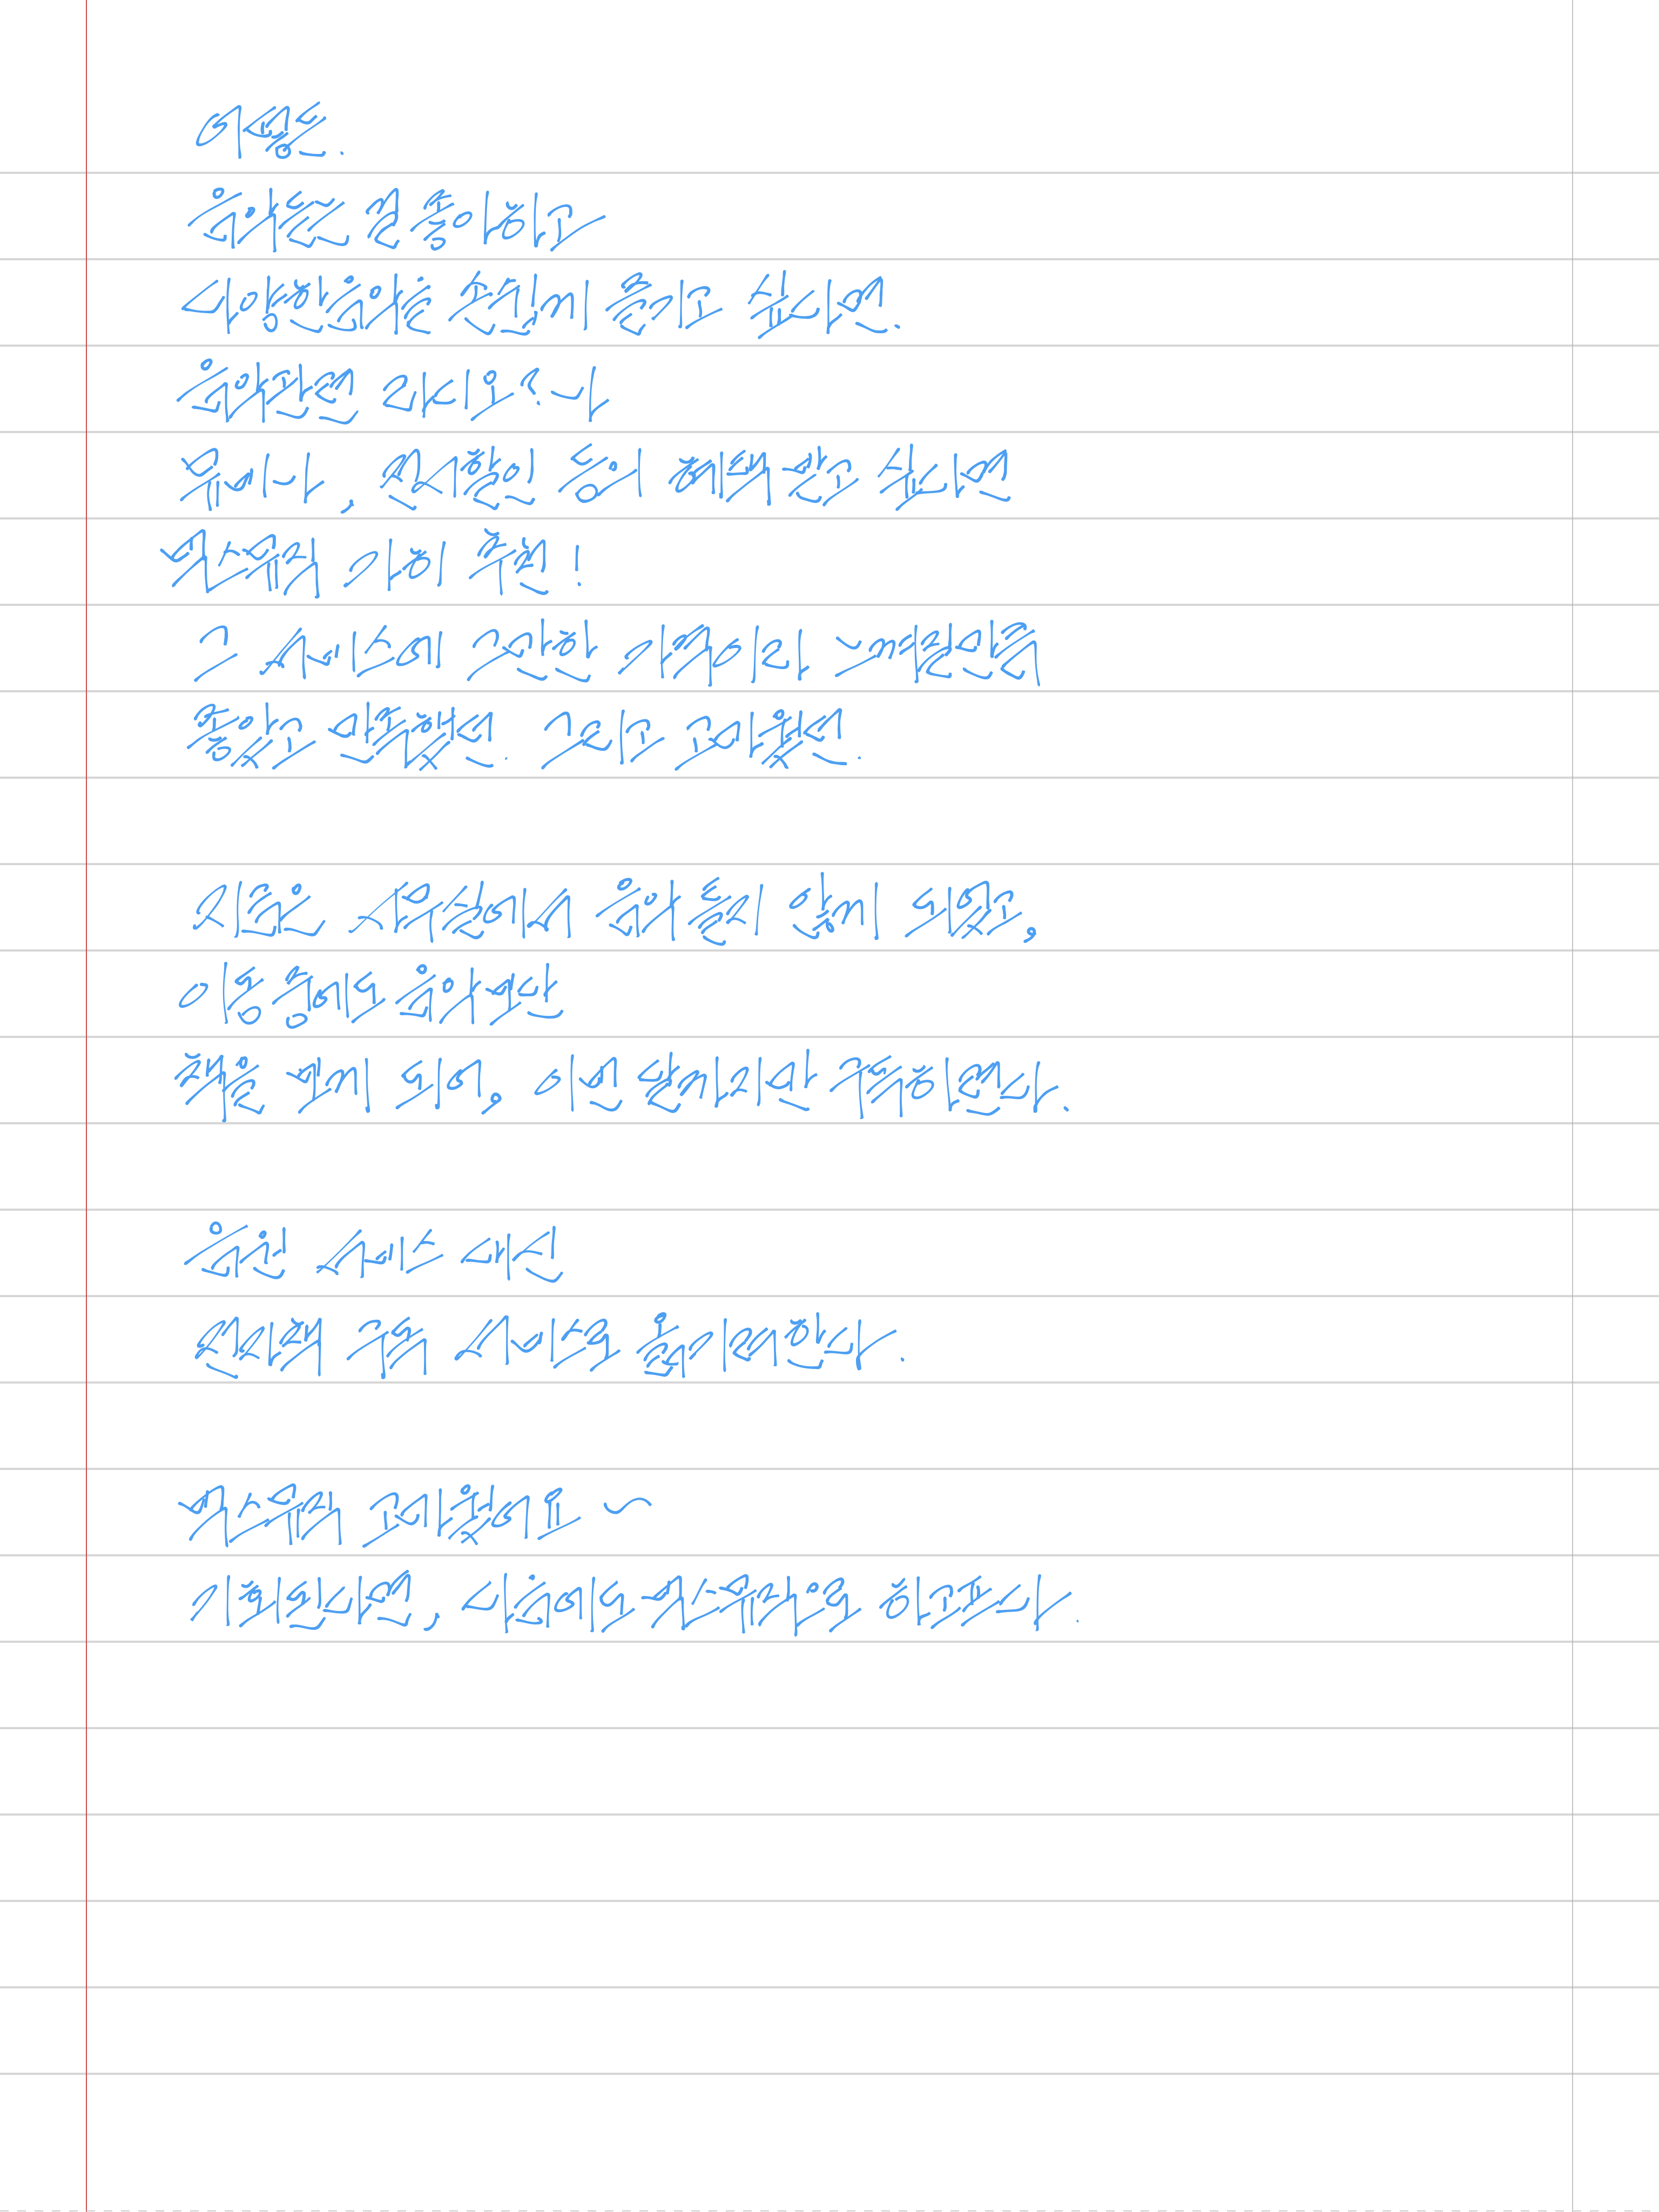 어쨌든.
음악을 잘 좋아하고
다양한 음악을 손쉽게 듣고 싶다면.
음악관련 라디오?나
뮤비나, 현지할인 등의 혜택 받고 싶다면
벅스뮤직 가히 추천!
그 서비스에 그만한 가족이라 느껴질만큼
좋았고 만족했던. 그리고 고마웠던.
요즘은 사무실에서 음악 듣지 않게 되었고,
이동 중에도 음악보단
책을 보게 되어, 이번 달까지만 구독하련다.
음원 서비스 대신
전자책 구독 서비스로 옮기려한다.
벅스뮤직 고마웠어요~
기회된다면, 다음에도 벅스뮤직으로 하련다.